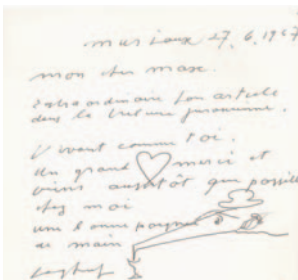 27. 6. 1967
mon cher max.
Extraordinaire ton article
dans la
Vivant comme toi.
un grand merci et
viens aussitôt que possible
chez moi
une bonne poignée
de main